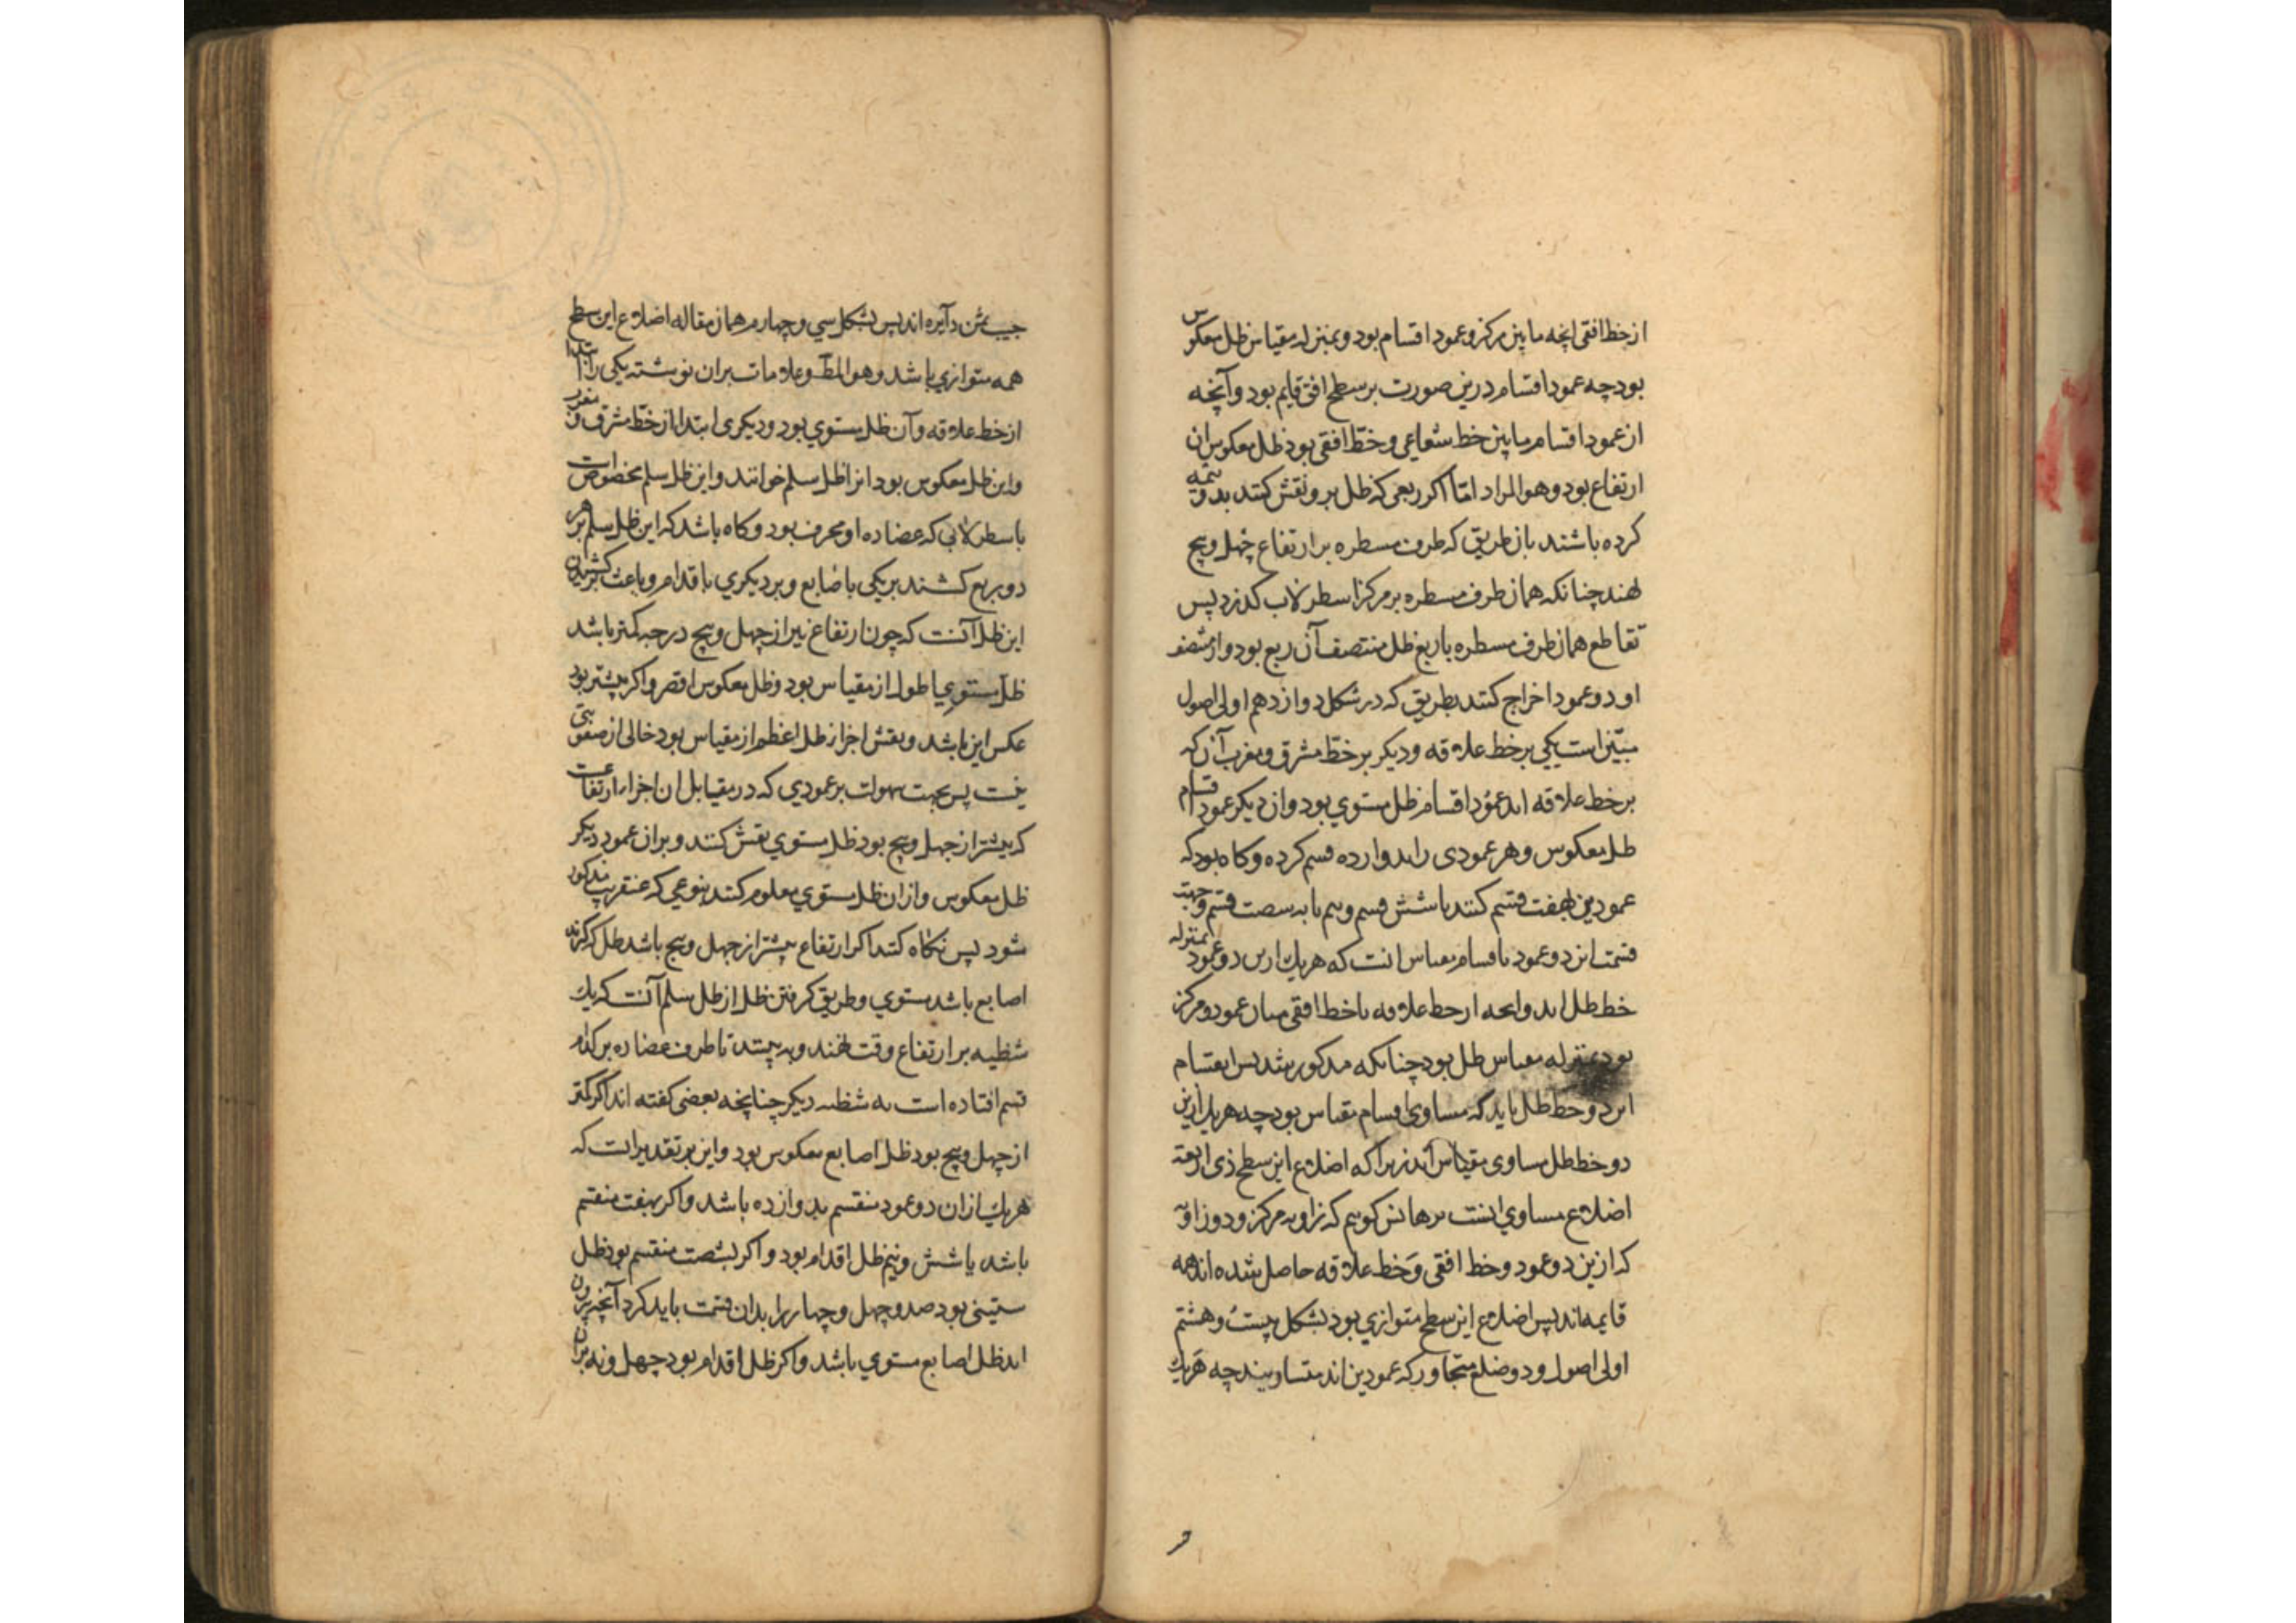 از خط افقی انچه ما بین مرکز و عمود اقسام بود و بمنزله مقیاس ظل معکوس
بود چه عمود اقسام درین صورت بر سطح افق قایم بود و آنچه
از عمود اقسام ما بین خط شعاعی و خط افقی بود ظل معکوس ان
ارتفاع بود و هو المراد امّا اگر ربعی که ظل برو نقش کنند بدو قسمه
کرده باشند بازطریق که طرف مسطره بر ارتفاع چهل و پنج
نهند چنانکه همان طرف مسطره بر مرکز اسطرلاب گذرد پس
تقاطع همان طرف مسطره باربع ظل منتصف آن ربع بود و از منتصف
او دو عمود اخراج کنند بطریق که در شکل دوازدهم اولی اصول
مبیّن است یکی بر خط علاقه و دیگر بر خط مشرق و مغرب آن که
بر خط علاقه اید عمُود اقسام ظل مستوی بود و ان دیگر عمود اقسام
ظل معکوس و هر عمودی را بدوازده قسم کرده و گاه بود که
عمودین بهفت قسم کنند یا شش قسم و نیم یا به شصت قسم و جهت
قسمت این دو عمود باقسام مقیاس انست که هریک ازین دو عمود بمنزله
خط ظل اند و انچه از خط علاقه یا خط افقی میان عمود و مرکز
بود بمنزله مقیاس ظل بود چنانکه مذکور شد پس انقسام
این دو خط ظل باید که مساوی اقسام مقیاس بود چه هریک ازین
دو خط ظل مساوی مقیاس اند زیرا که اضلاع این سطح ذی اربعة
اضلاع مساوی است برهانش گوییم که زاویه مرکز و دو زاویه
که ازین دو عمود و خط افقی و خط علاقه حاصل شده اند همه
قایمه اند پس اضلاع این سطح متوازی بود بشکل بیست و هشتم
اولی اصول و دو ضلع متجاور که عمودین اند متساویند چه هریک
جیب ثمن دآیره اند پس بشکل سی و چهارم همان مقاله اضلاع این سطح
همه متوازی باشد و هو المط و علامات بران نوشته یکی را ابتدا
از خط علاقه و آن ظل مستوی بود و دیگری ابتدا از خط مشرق و مغرب
و این ظل معکوس بود انرا ظل سلم خوانند و این ظل سلم مخصوص است
باسطرلابی که عضاده او محرف بود و گاه باشد که این ظل سلم بر هر
دو ربع کشند بریکی باصابع و بر دیگری باقدام و باعث بر کشیدن
این ظل آنست که چون ارتفاع نیر از چهل و پنج درجه کمتر باشد
ظل مستوی اطول از مقیاس بود و ظل معکوس اقصر و اگر بیشتر بود
عکس این باشد و نقش اجزا ظل اعظم از مقیاس بود خالی از صعوبتی
نیست پس بجهت سهولت بر عمودی که در مقابل ان اجزاء ارتفاعست
که بیشتر از چهل و پنج بود ظل مستوی نقش کنند و بران عمود دیگر
ظل معکوس و ازان ظل مستوی معلوم کنند بنوعی که عنقریب مذکور
شود پس نگاه کند اگر ارتفاع بیشتر از چهل و پنج باشد ظل که گیرند
اصابع باشد مستوی و طریق گرفتن ظل از ظل سلم آنست که یک
شظیه بر ارتفاع وقت نهند و به بینند تا طرف عضاده بر کدام
قسم افتاده است به شظیه دیگر چنانچه بعضی گفته اند اگر کمتر
از چهل و پنج بود ظل اصابع معکوس بود و این بر تقدیر است که
هریک ازان دو عمود منقسم بدوازده باشد و اگر بهفت منقسم
باشد یا شش و نیم ظل اقدام بود و اگر بشصت منقسم بود ظل
ستینی بود صد و چهل و چهار را بدان قسمت باید کرد آنچه بیرون
اید ظل اصابع مستوی باشد و اگر ظل اقدام بود چهل و نه بران